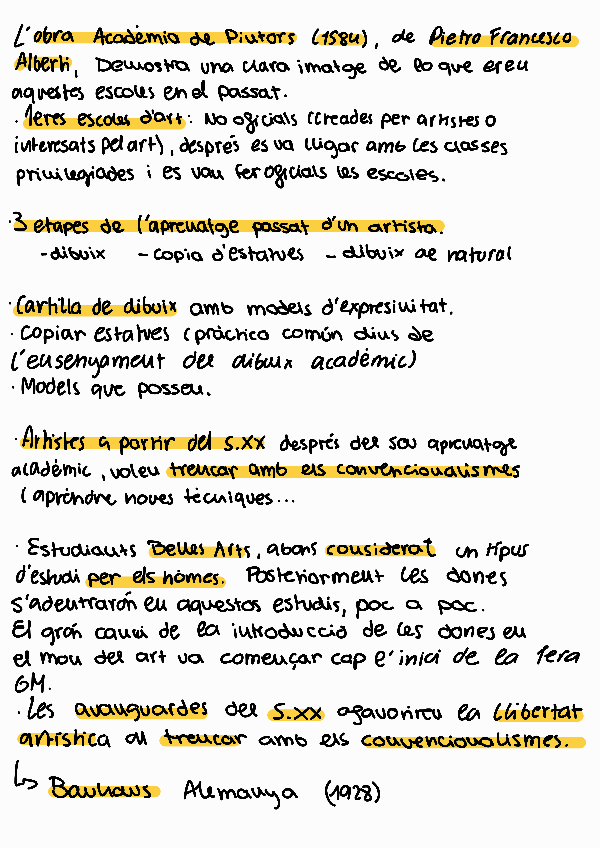 L'obra Acadèmia de Pintors (1584), de Pietro Francesco
Alberti, Demostra una clara imatge de lo que eren
aquestes escoles en el passat.
· 1eres escoles d'art: No oficials (Creades per artistes o
interesats pel art), després es va lligar amb les classes
privilegiades i es van fer oficials les escoles.
· 3 etapes de l'aprenatge passat d'un artista.
- dibuix - copia d'estatues - dibuix de natural
· Cartilla de dibuix amb models d'expresivitat.
· Copiar estatues (pràctica común dins de
l'ensenyament del dibuix acadèmic)
· Models que posseu.
· Artistes a partir del S.XX després del seu aprenatge
acadèmic, volen trencar amb els convencionalismes
i aprendre noves tècniques...
· Estudiants Belles Arts, abans considerat un tipus
d'estudi per els homes. Posteriorment les dones
s'adentraron en aquestos estudis, poc a poc.
El gran canvi de la introducció de les dones en
el mon del art va començar cap l'inici de la 1era
GM.
· Les avanguardes del S.XX afavoriren la llibertat
artística al trencar amb els convencionalismes.
↳ Bauhaus Alemanya (1928)